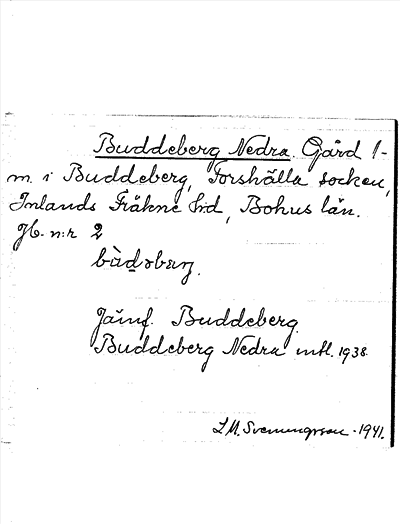 Buddeberg Nedra. Gård 1-
m. i Buddeberg, Forshälla socken,
Inlands Fräkne hrd, Bohus län.
Jb. n:r 2
Jämf. Buddeberg.
Buddeberg Nedra mtl. 1938.
L.M. Svenungsson - 1941.